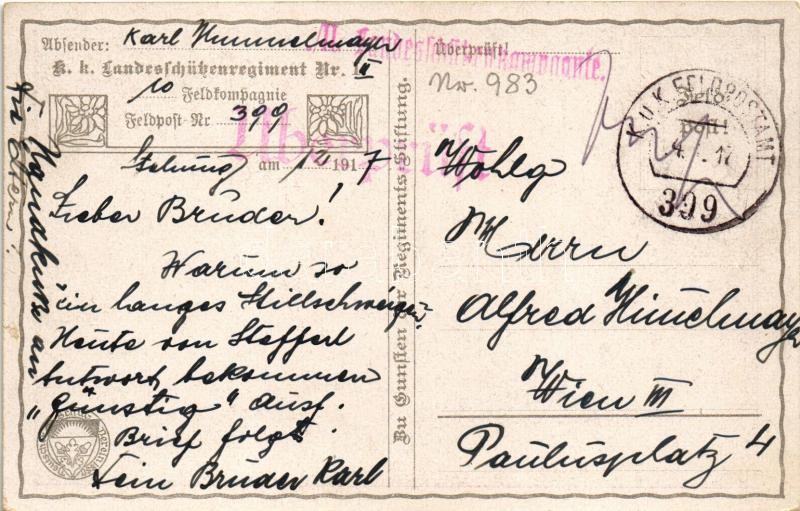 Absender: Karl Hummelmayer
K. k. Landesschützenregiment Nr. II
10 Feldkompagnie
Feldpost-Nr 399
am 1/2 1917
Lieber Bruder!
Warum so
ein langes Stillschweigen.
Heute von Stefferl
Antwort bekommen
"günstig" ausf.
Brief folgt
Dein Bruder Karl
Handkuss an
Zu Gunsten der Regiments-Stiftung.
Überprüft!
Landesschützenkompagnie.
Nr. 983
Überprüft
K.U.K. FELDPOSTAMT
17
399
Wohlg
Herrn
Alfred Himelmayer
Wien III
Paulusplatz 4